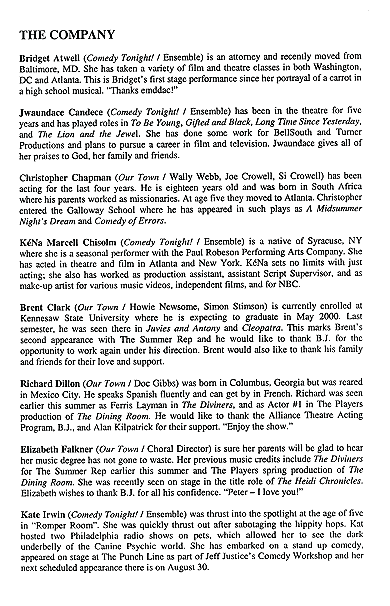 THE COMPANY
Bridget Atwell (Comedy Tonight! / Ensemble) is an attorney and recently moved from
Baltimore, MD. She has taken a variety of film and theatre classes in both Washington,
DC and Atlanta. This is Bridget's first stage performance since her portrayal of a carrot in
a high school musical. "Thanks emddac!"
Jwaundace Candece (Comedy Tonight! / Ensemble) has been in the theatre for five
years and has played roles in To Be Young, Gifted and Black, Long Time Since Yesterday,
and The Lion and the Jewel. She has done some work for BellSouth and Turner
Productions and plans to pursue a career in film and television. Jwaundace gives all of
her praises to God, her family and friends.
Christopher Chapman (Our Town / Wally Webb, Joe Crowell, Si Crowell) has been
acting for the last four years. He is eighteen years old and was born in South Africa
where his parents worked as missionaries. At age five they moved to Atlanta. Christopher
entered the Galloway School where he has appeared in such plays as A Midsummer
Night's Dream and Comedy of Errors.
KéNa Marcell Chisolm (Comedy Tonight! / Ensemble) is a native of Syracuse, NY
where she is a seasonal performer with the Paul Robeson Performing Arts Company. She
has acted in theatre and film in Atlanta and New York. KéNa sets no limits with just
acting; she also has worked as production assistant, assistant Script Supervisor, and as
make-up artist for various music videos, independent films, and for NBC.
Brent Clark (Our Town / Howie Newsome, Simon Stimson) is currently enrolled at
Kennesaw State University where he is expecting to graduate in May 2000. Last
semester, he was seen there in Juvies and Antony and Cleopatra. This marks Brent's
second appearance with The Summer Rep and he would like to thank B.J. for the
opportunity to work again under his direction. Brent would also like to thank his family
and friends for their love and support.
Richard Dillon (Our Town / Doc Gibbs) was born in Columbus, Georgia but was reared
in Mexico City. He speaks Spanish fluently and can get by in French. Richard was seen
earlier this summer as Ferris Layman in The Diviners, and as Actor #1 in The Players
production of The Dining Room. He would like to thank the Alliance Theatre Acting
Program, B.J., and Alan Kilpatrick for their support. "Enjoy the show."
Elizabeth Falkner (Our Town / Choral Director) is sure her parents will be glad to hear
her music degree has not gone to waste. Her previous music credits include The Diviners
for The Summer Rep earlier this summer and The Players spring production of The
Dining Room. She was recently seen on stage in the title role of The Heidi Chronicles.
Elizabeth wishes to thank B.J. for all his confidence. "Peter – I love you!"
Kate Irwin (Comedy Tonight! / Ensemble) was thrust into the spotlight at the age of five
in "Romper Room". She was quickly thrust out after sabotaging the hippity hops. Kat
hosted two Philadelphia radio shows on pets, which allowed her to see the dark
underbelly of the Canine Psychic world. She has embarked on a stand up comedy,
appeared on stage at The Punch Line as part of Jeff Justice's Comedy Workshop and her
next scheduled appearance there is on August 30.